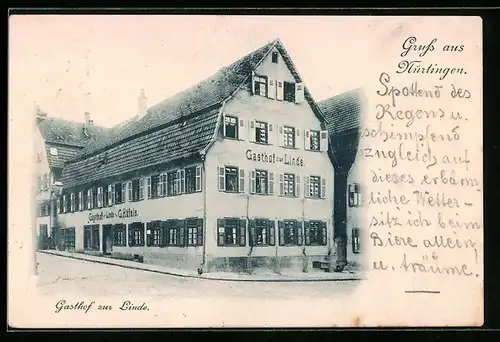 Gruß aus
Nürtingen.
Spottend des
Regens u.
schimpfend
zugleich auf
dieses erbärm-
liche Wetter-
sitz ich beim
Biere allein
u. träume!
Gasthof zur Linde.
Gasthof zur Linde v. C. Häfele.
Gasthof zur Linde.